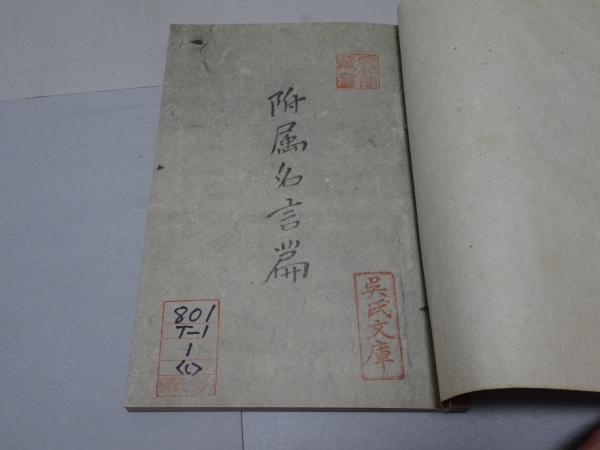 附属名言篇
吳氏文庫
801
T-1
1